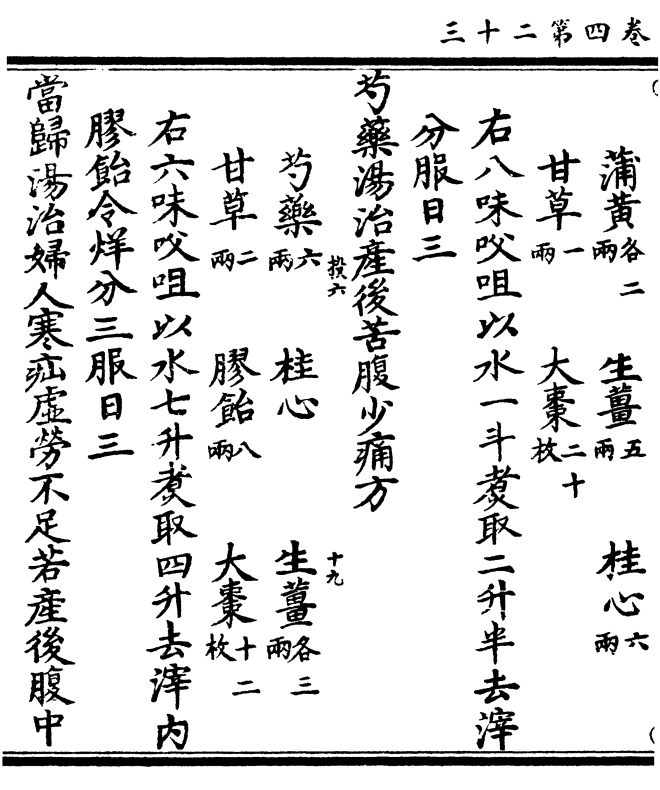 卷四第二十三
蒲黃各二兩 生薑五兩 桂心六兩
甘草一兩 大棗二十枚
右八味㕮咀以水一斗煑取二升半去滓
分服日三
芍藥湯治產後苦腹少痛方
投六 十九
芍藥六兩 桂心 生薑各三兩
甘草二兩 膠飴八兩 大棗十二枚
右六味㕮咀以水七升煑取四升去滓內
膠飴令烊分三服日三
當歸湯治婦人寒疝虛勞不足若產後腹中